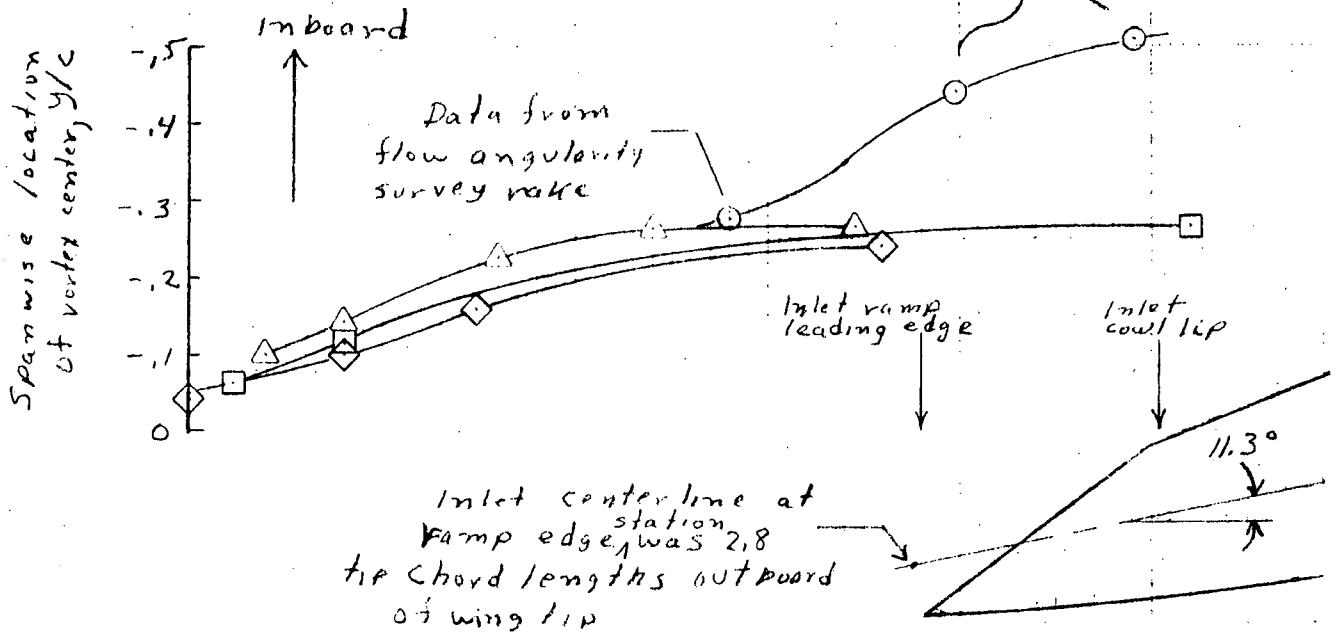 Inboard
Spanwise location
of vortex center, y/c
-.5
-.4
-.3
-.2
-.1
0
Data from
flow angularity
survey rake
Inlet ramp
leading edge
Inlet
cowl lip
11.3°
Inlet centerline at
ramp edge station was 2.8
tip chord lengths outboard
of wing tip